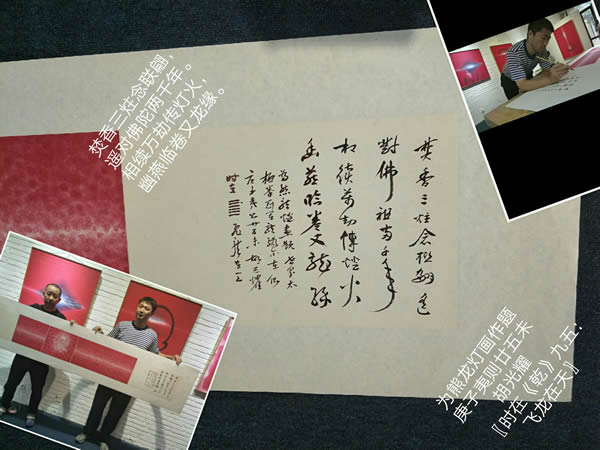 焚香三炷念联翩，
遥对佛陀两千年。
相续万劫传灯火，
幽燕临卷又龙缘。
焚香三炷念聯翩遥
對佛祖两千年
相續萬劫傳燈火
幽燕臨卷又龍緣
时在
为熊龙灯画作题
庚子夷则廿五未
胡光耀
〖时在《乾》九五：
飞龙在天〗